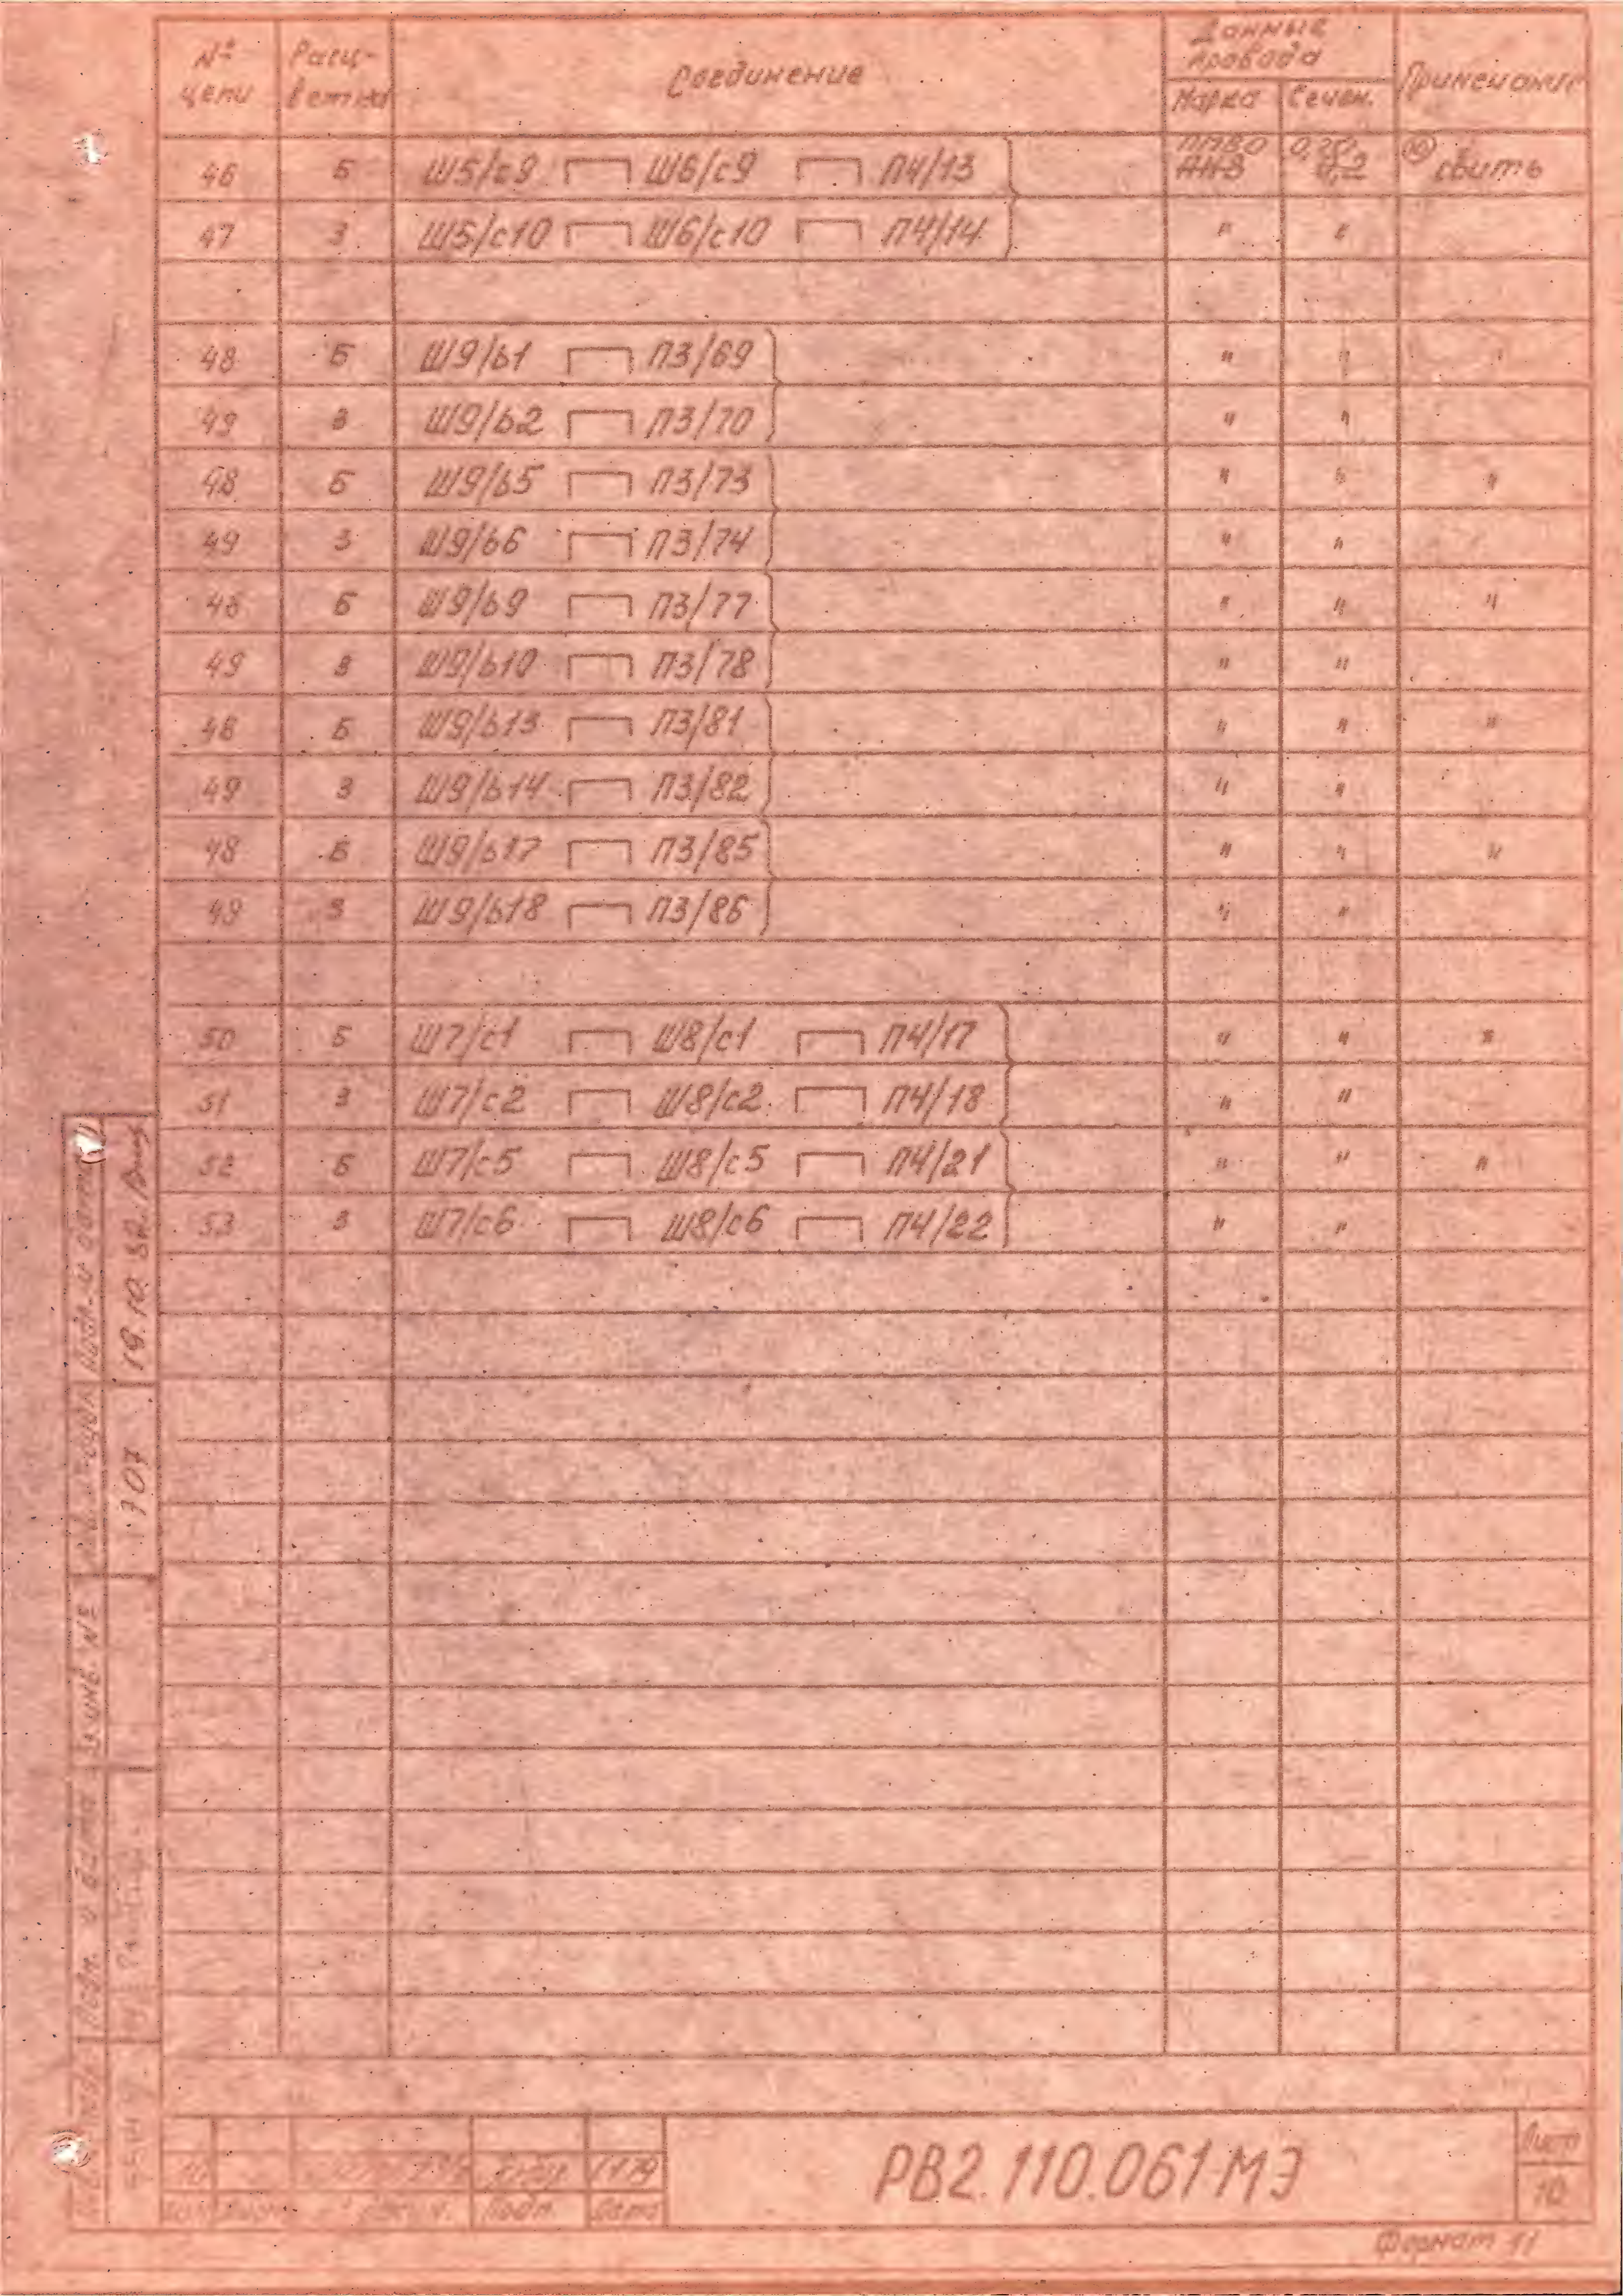 № цепи Расцветка Соединение Данные провода Примечание
Марка Сечен.
46 Б Ш5/с9 Ш6/с9 П4/13 ПМВО 0,20 10 свить
АНВ 0,2
47 З Ш5/с10 Ш6/с10 П4/14 " "
48 Б Ш9/b1 П3/69 " " "
49 З Ш9/b2 П3/70 " "
48 Б Ш9/b5 П3/73 " " "
49 З Ш9/b6 П3/74 " "
48 Б Ш9/b9 П3/77 " " "
49 З Ш9/b10 П3/78 " "
48 Б Ш9/b13 П3/81 " " "
49 З Ш9/b14 П3/82 " "
48 Б Ш9/b17 П3/85 " " "
49 З Ш9/b18 П3/86 " "
50 Б Ш7/с1 Ш8/с1 П4/17 " " "
51 З Ш7/с2 Ш8/с2 П4/18 " "
52 Б Ш7/с5 Ш8/с5 П4/21 " " "
53 З Ш7/с6 Ш8/с6 П4/22 " "
Подп. и дата
707
инв. №
Подп. и дата
10
Подп. Дата
РВ2.110.061МЭ
Лист
10
Формат 11